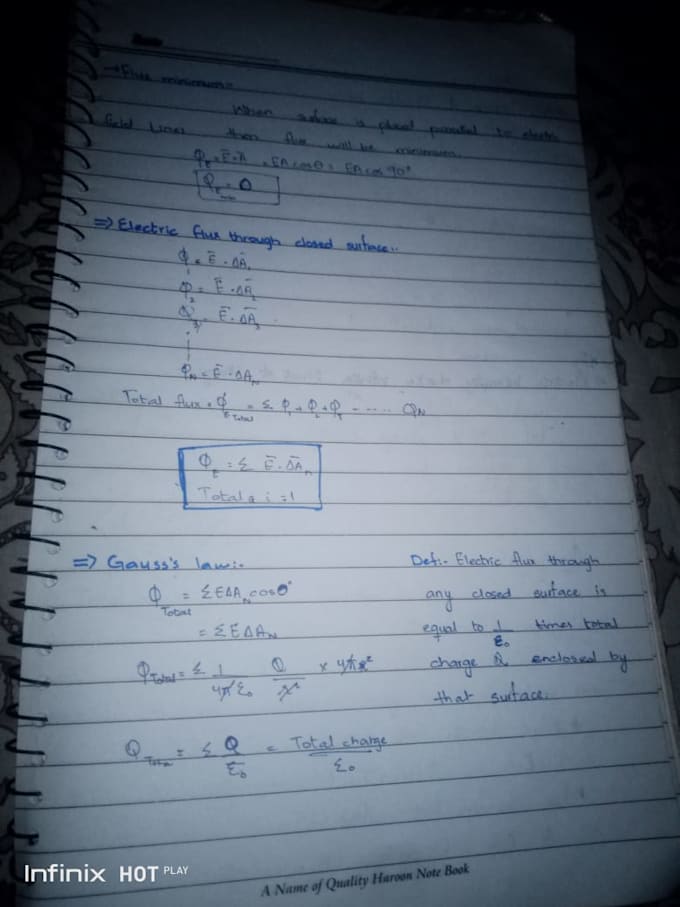 → Flux minimum:-
When surface is placed parallel to electric
field lines then flux will be minimum.
Φ_E = E̅·A = EA cosθ = EA cos 90°
Φ_E = 0
⇒ Electric flux through closed surface:-
Φ₁ = E̅·ΔA̅₁
Φ₂ = E̅·ΔA̅₂
Φ₃ = E̅·ΔA̅₃
Φ_N = E̅·ΔA_N
Total flux = Φ_E Total = Σ Φ₁ + Φ₂ + Φ₃ - - - - - Φ_N
Φ_E = Σ E̅·ΔA̅_n
Total i = 1
⇒ Gauss's law:-
Φ_Total = ΣEΔA_N cos0°
= ΣEΔA_N
Φ_Total = Σ 1/4πε₀ Q/r² × 4πr²
Φ_Total = Σ Q/ε₀ = Total charge/ε₀
Def:- Electric flux through
any closed surface is
equal to 1/ε₀ times total
charge enclosed by
that surface.
Infinix HOT PLAY
A Name of Quality Haroon Note Book